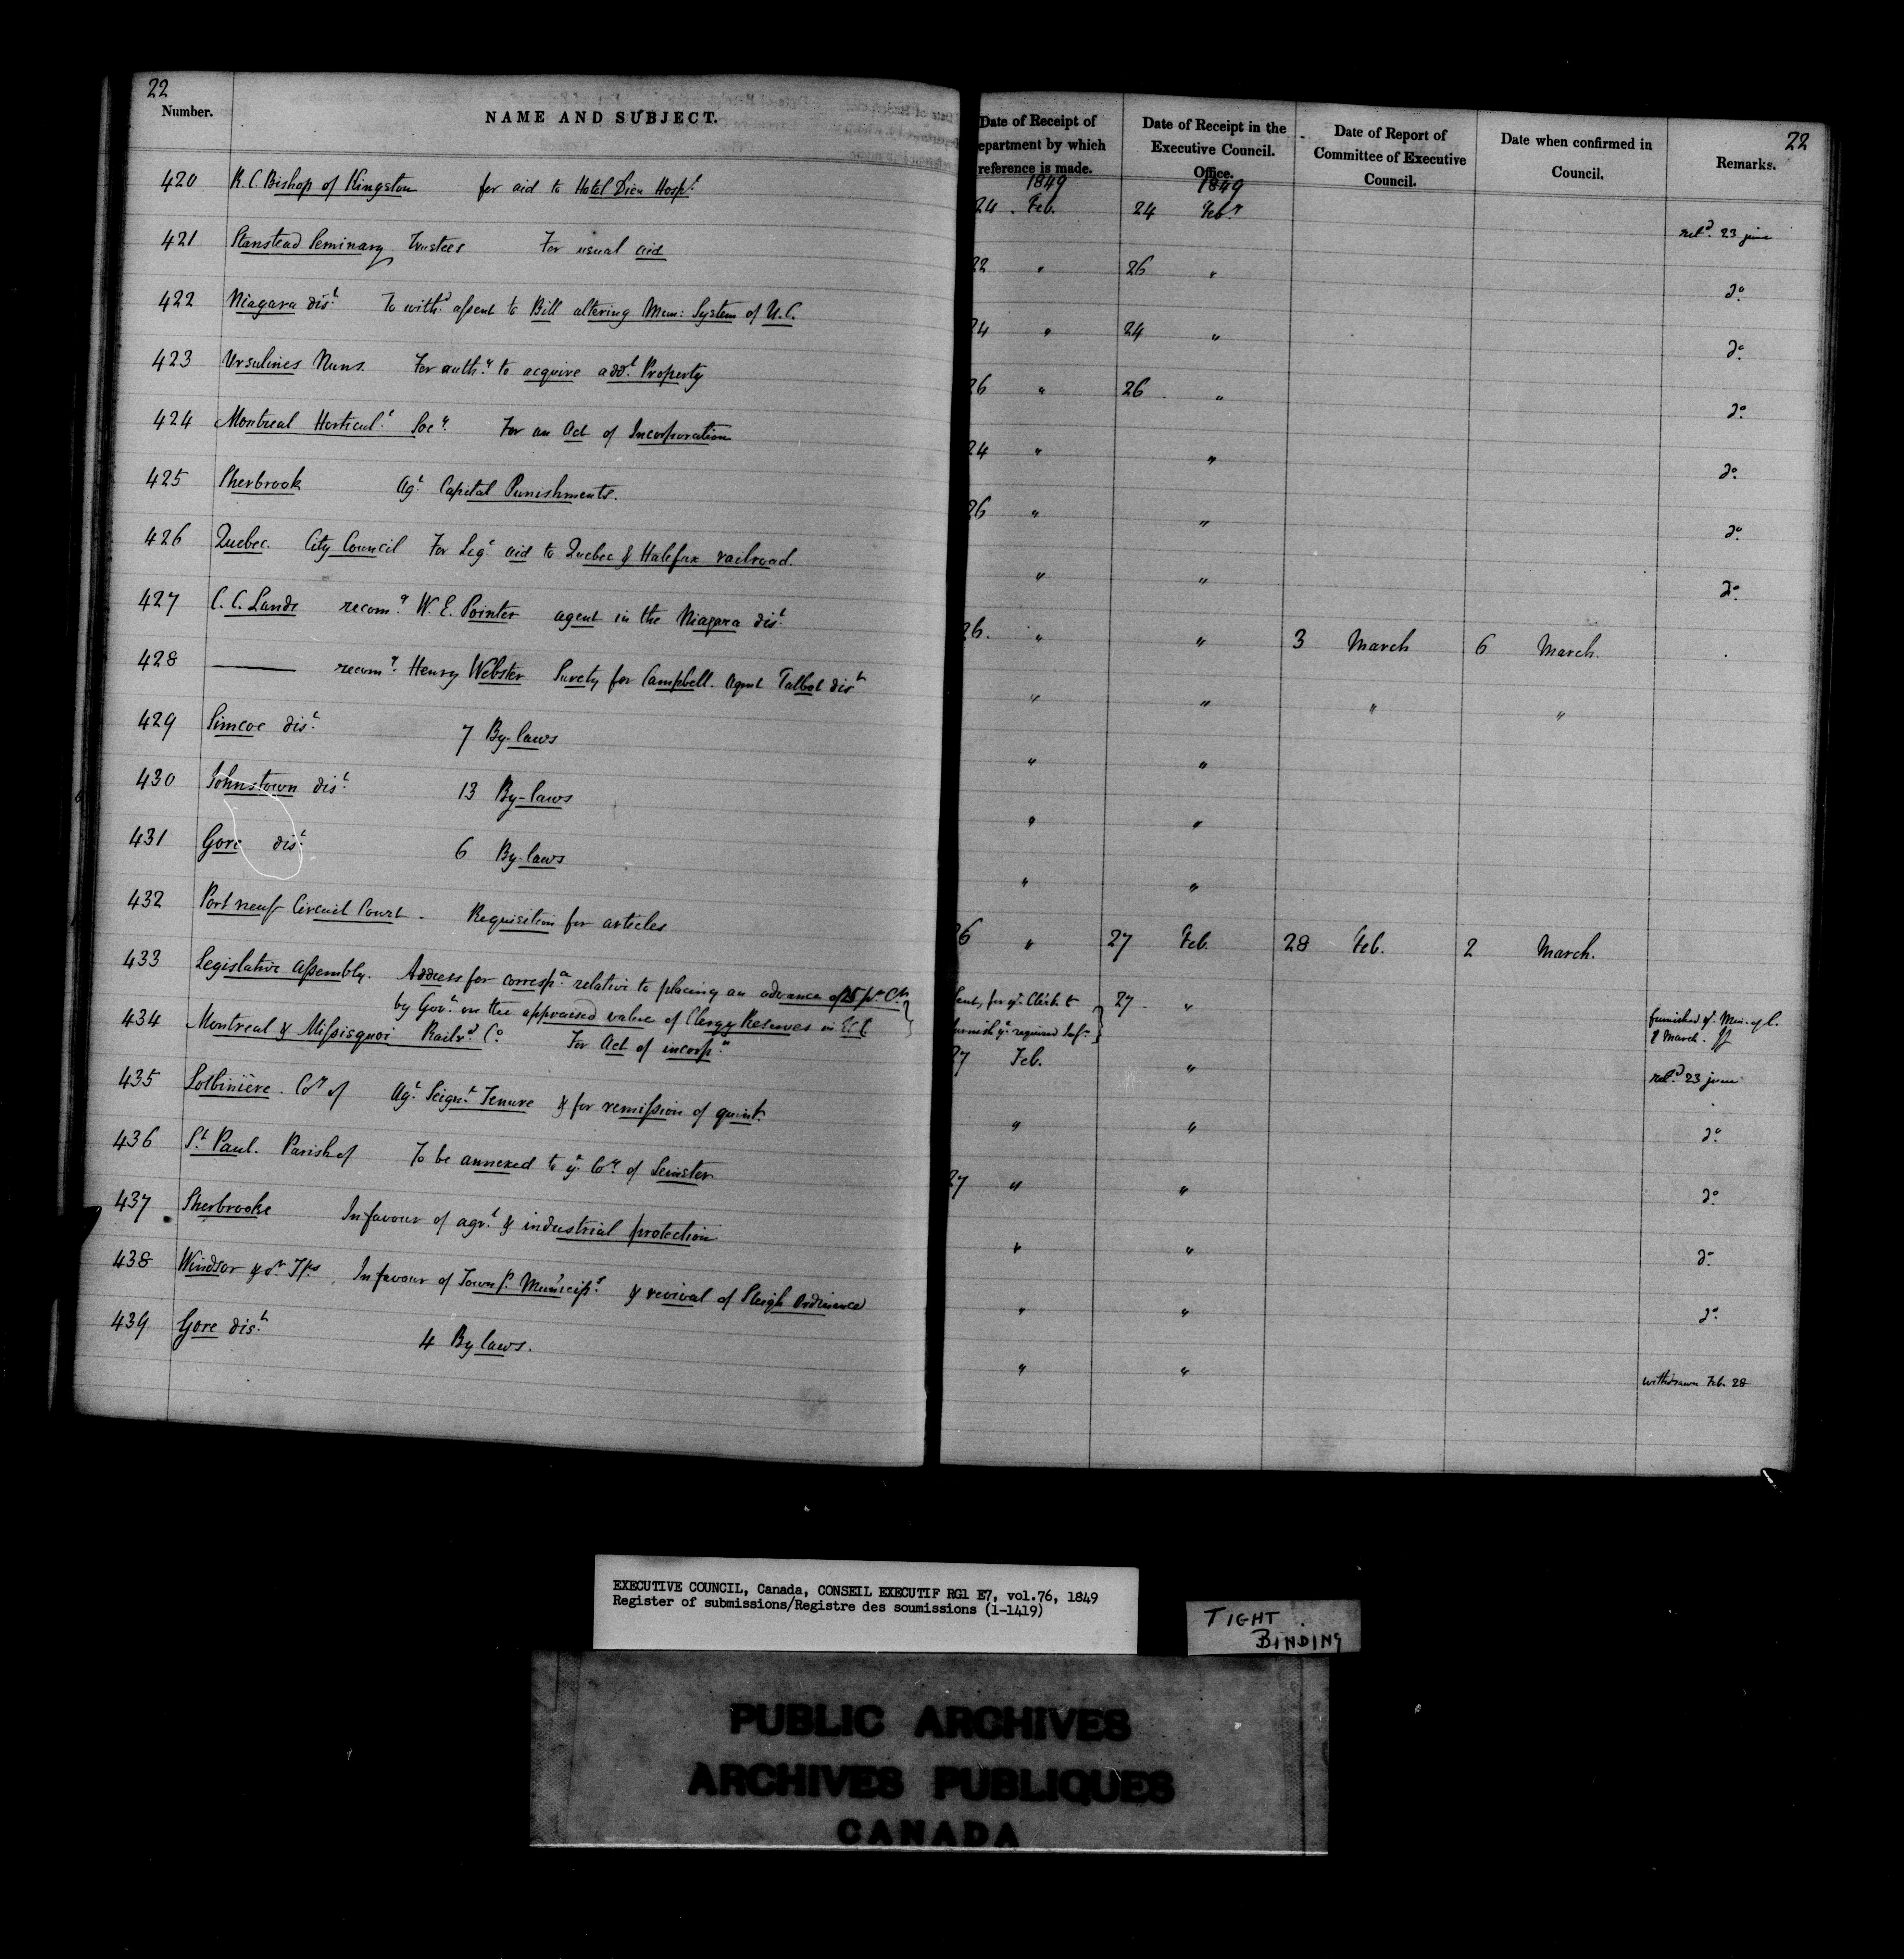 22
Number. NAME AND SUBJECT.
Date of Receipt of epartment by which reference is made. Date of Receipt in the Executive Council. Office. Date of Report of Committee of Executive Council. Date when confirmed in Council. 22 Remarks.
1849 1849
420 R. C. Bishop of Kingston for aid to Hotel Dieu Hospl. 24 Feb. 24 Feby. retd. 23 june
421 Stanstead Seminary Trustees For usual aid 22 " 26 " do.
422 Niagara dist. To withd. assent to Bill altering Mun: System of U.C. 24 " 24 " do.
423 Ursulines Nuns. For authy. to acquire addl. Property 26 " 26 " do.
424 Montreal Horticull. Socy. For an Act of Incorporation 24 " " do.
425 Sherbrook Agt. Capital Punishments. 26 " " do.
426 Quebec. City Council For Lege aid to Quebec & Halifax railroad. " " do.
427 C. C. Lands recomg. W. E. Pointer agent in the Niagara dist. 26. " " 3 March 6 March.
428 ——— recomg. Henry Webster Surety for Campbell. Agent Talbot dist " " " "
429 Simcoe dist. 7 By-laws " "
430 Johnstown dist. 13 By-laws " "
431 Gore dist. 6 By-laws " "
432 Portneuf Circuit Court. Requisition for articles 26 " 27 Feb. 28 Feb. 2 March.
433 Legislative Assembly. Address for correspce relative to placing an advance of 15 pr Ct.
by Govt. on the appraised value of Clergy Reserves in E.T. Sent, for ye Clerk to furnish ye required Infn. 27 " furnished ye Min. of C. 8 March.
434 Montreal & Missisquoi Railrd. Co. For Act of incorpn. 27 Feb. " retd. 23 june
435 Lotbinière. Coy of Agt. Seignl. Tenure & for remission of quint. " " do.
436 St. Paul. Parish of To be annexed to ye. Coy. of Leinster 27 " " do.
437 Sherbrooke In favour of agrl. & industrial protection " " do.
438 Windsor & or. Tps. In favour of Townp. Municips. & revival of Sleigh Ordinance " " do.
439 Gore dist. 4 By laws. " " withdrawn Feb. 28
EXECUTIVE COUNCIL, Canada, CONSEIL EXECUTIF RG1 E7, vol.76, 1849
Register of submissions/Registre des soumissions (1-1419)
TIGHT
BINDING
PUBLIC ARCHIVES
ARCHIVES PUBLIQUES
CANADA